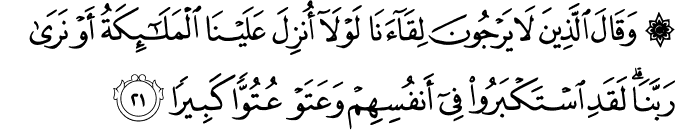 ۞ وَقَالَ ٱلَّذِينَ لَا يَرْجُونَ لِقَآءَنَا لَوْلَآ أُنزِلَ عَلَيْنَا ٱلْمَلَـٰٓئِكَةُ أَوْ نَرَىٰ
رَبَّنَا ۗ لَقَدِ ٱسْتَكْبَرُوا۟ فِىٓ أَنفُسِهِمْ وَعَتَوْ عُتُوًّا كَبِيرًا ٢١